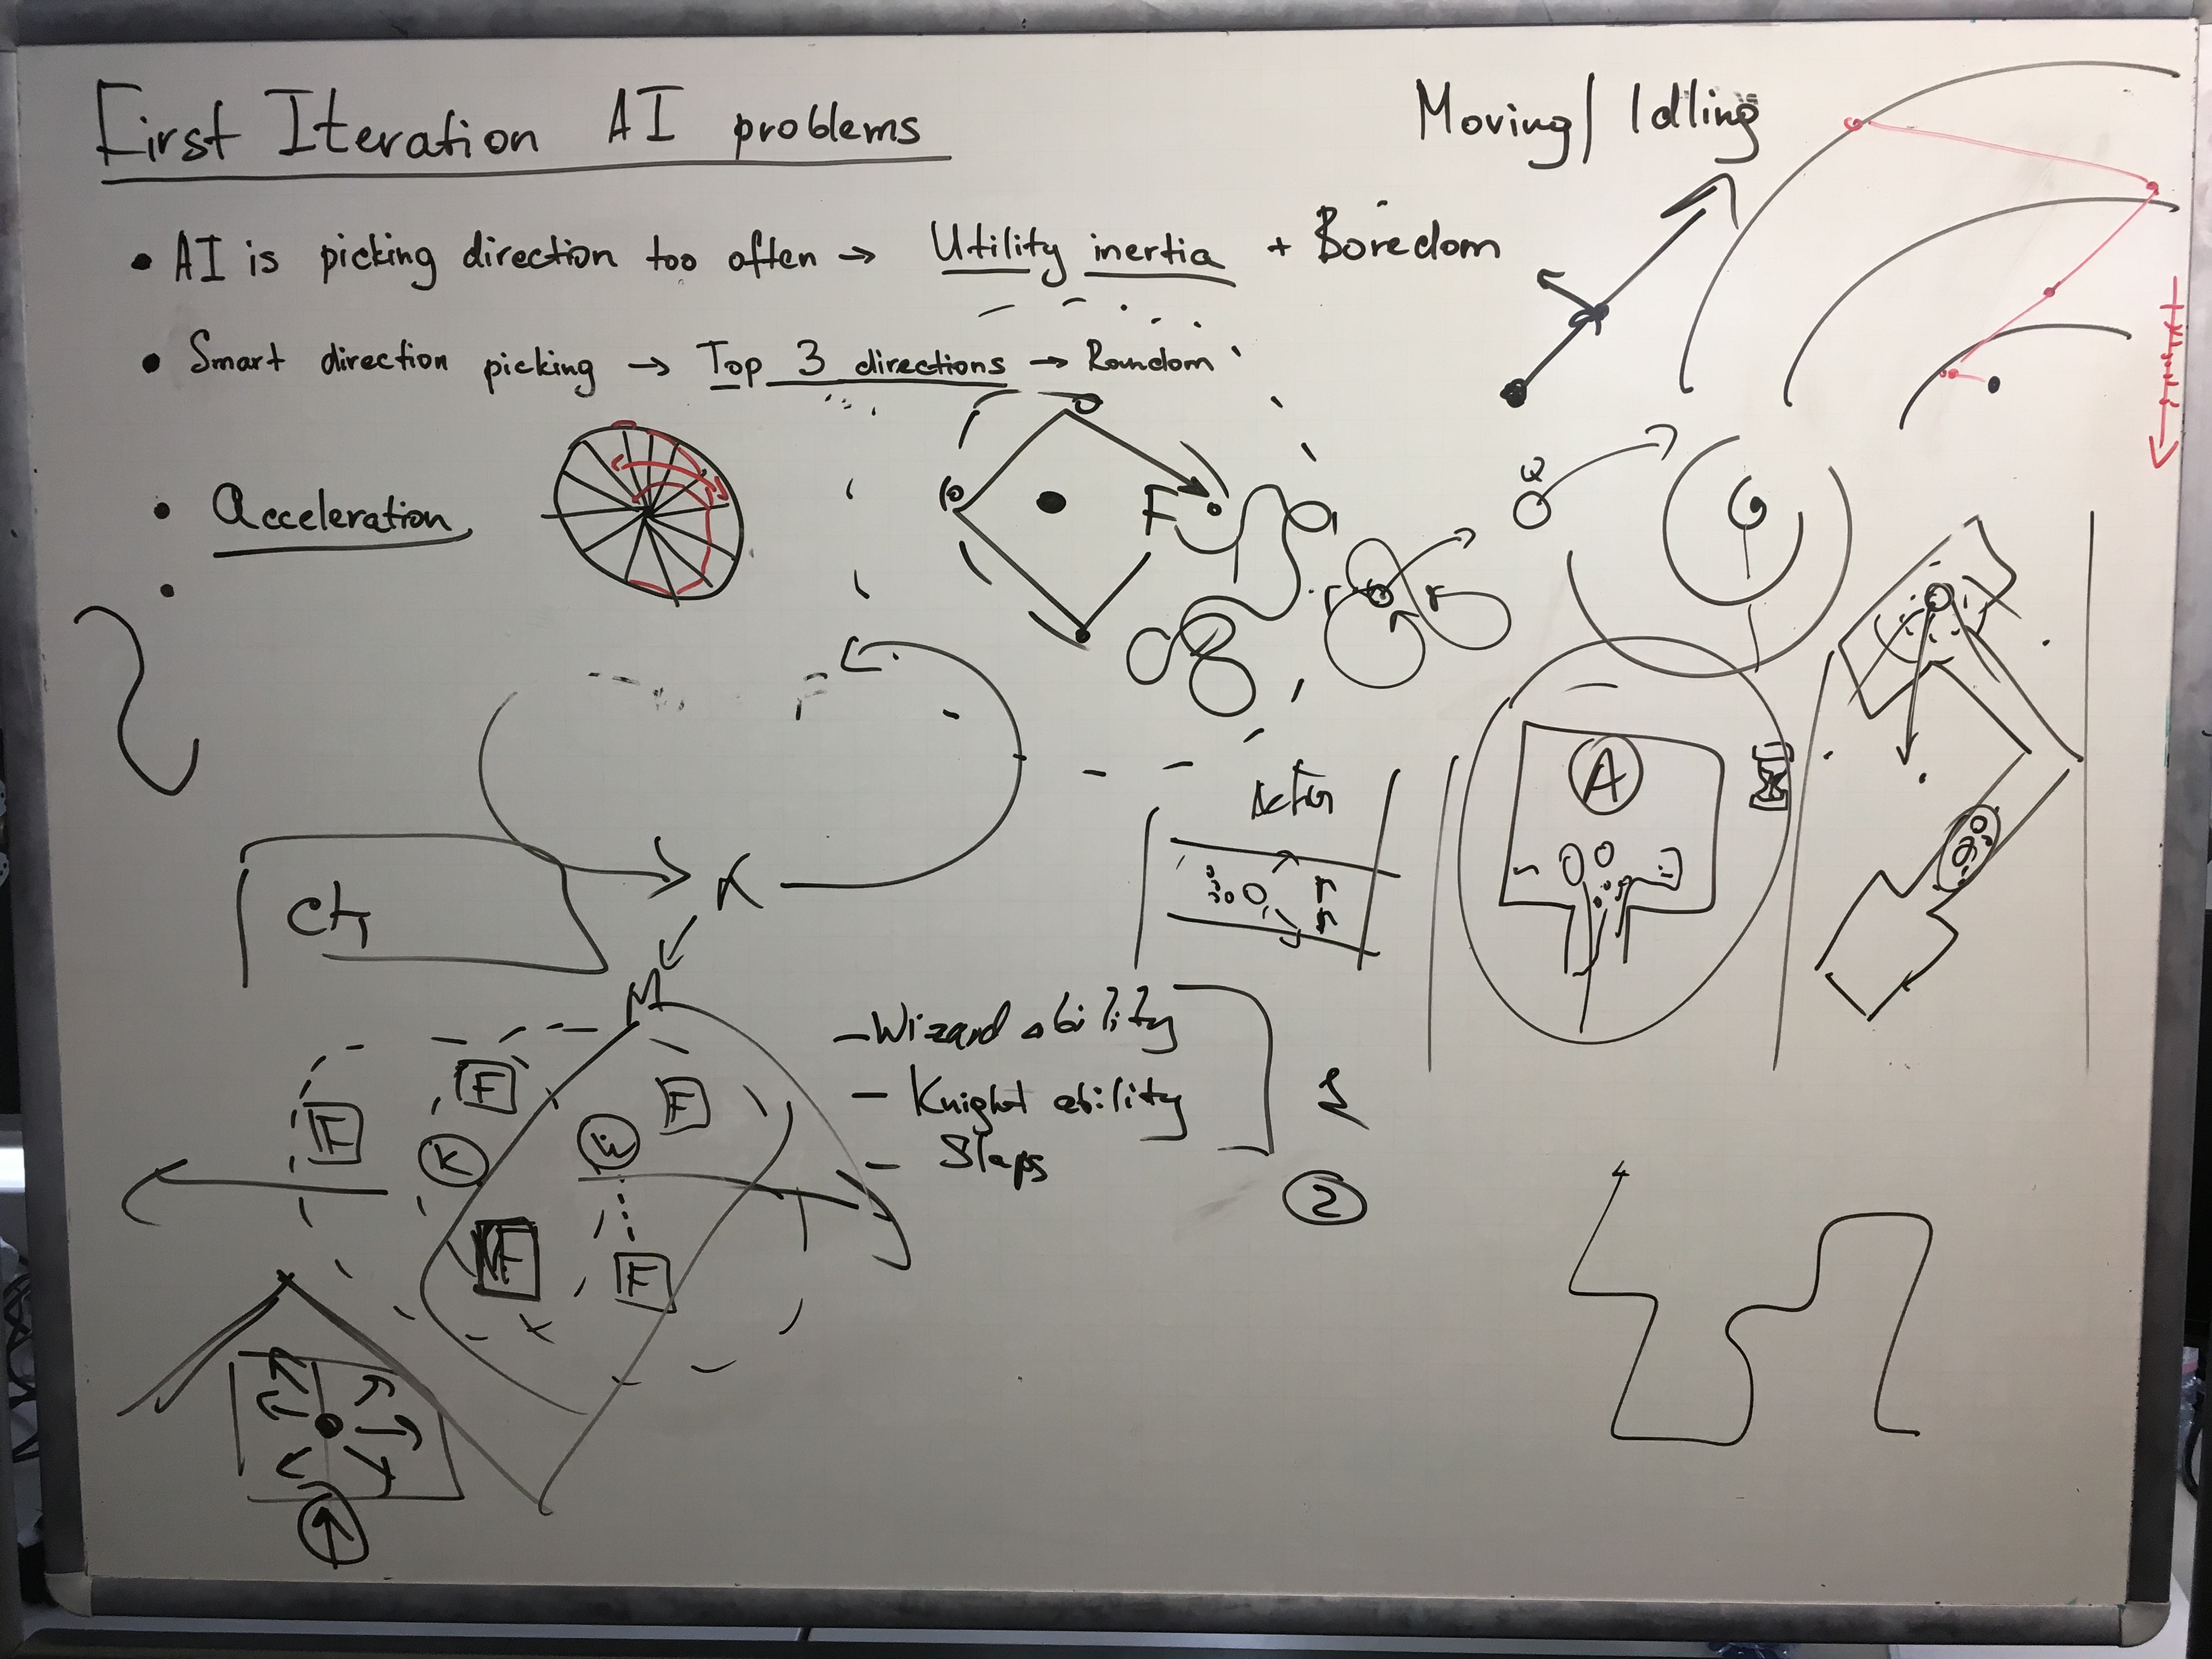 First Iteration AI problems
Moving/Idling
• AI is picking direction too often → Utility inertia + Boredom
• Smart direction picking → Top 3 directions → Random
• Acceleration
F
A
K
M
- Wizard ability
- Knight ability
- Slaps
2
F
F
F
K
W
F
F